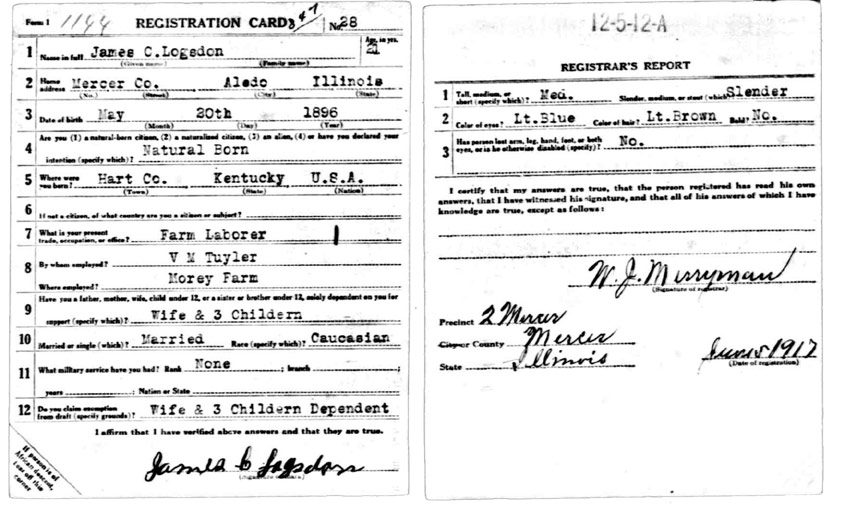 Form 1 1144 REGISTRATION CARD No. 28
1 Name in full James C.Logsdon Age, in yrs. 21
(Given name) (Family name)
2 Home address Mercer Co. Aledo Illinois
(No.) (Street) (City) (State)
3 Date of birth May 20th 1896
(Month) (Day) (Year)
4 Are you (1) a natural-born citizen, (2) a naturalized citizen, (3) an alien, (4) or have you declared your
intention (specify which)? Natural Born
5 Where were you born? Hart Co. Kentucky U.S.A.
(Town) (State) (Nation)
6 If not a citizen, of what country are you a citizen or subject?
7 What is your present trade, occupation, or office? Farm Laborer
8 By whom employed? V M Tuyler
Where employed? Morey Farm
9 Have you a father, mother, wife, child under 12, or a sister or brother under 12, solely dependent on you for
support (specify which)? Wife & 3 Childern
10 Married or single (which)? Married Race (specify which)? Caucasian
11 What military service have you had? Rank None ; branch ;
years ; Nation or State
12 Do you claim exemption from draft (specify grounds)? Wife & 3 Childern Dependent
I affirm that I have verified above answers and that they are true.
James C Logsdon
If person is of
African descent,
tear off this
corner
12-5-12-A
REGISTRAR'S REPORT
1 Tall, medium, or short (specify which)? Med. Slender, medium, or stout (which)? Slender
2 Color of eyes? Lt.Blue Color of hair? Lt.Brown Bald? No.
3 Has person lost arm, leg, hand, foot, or both
eyes, or is he otherwise disabled (specify)? No.
I certify that my answers are true, that the person registered has read his own
answers, that I have witnessed his signature, and that all of his answers of which I have
knowledge are true, except as follows:
W. J. Merryman
(Signature of registrar)
Precinct 2 Mercer
City or County Mercer
State Illinois
June 5 1917
(Date of registration)